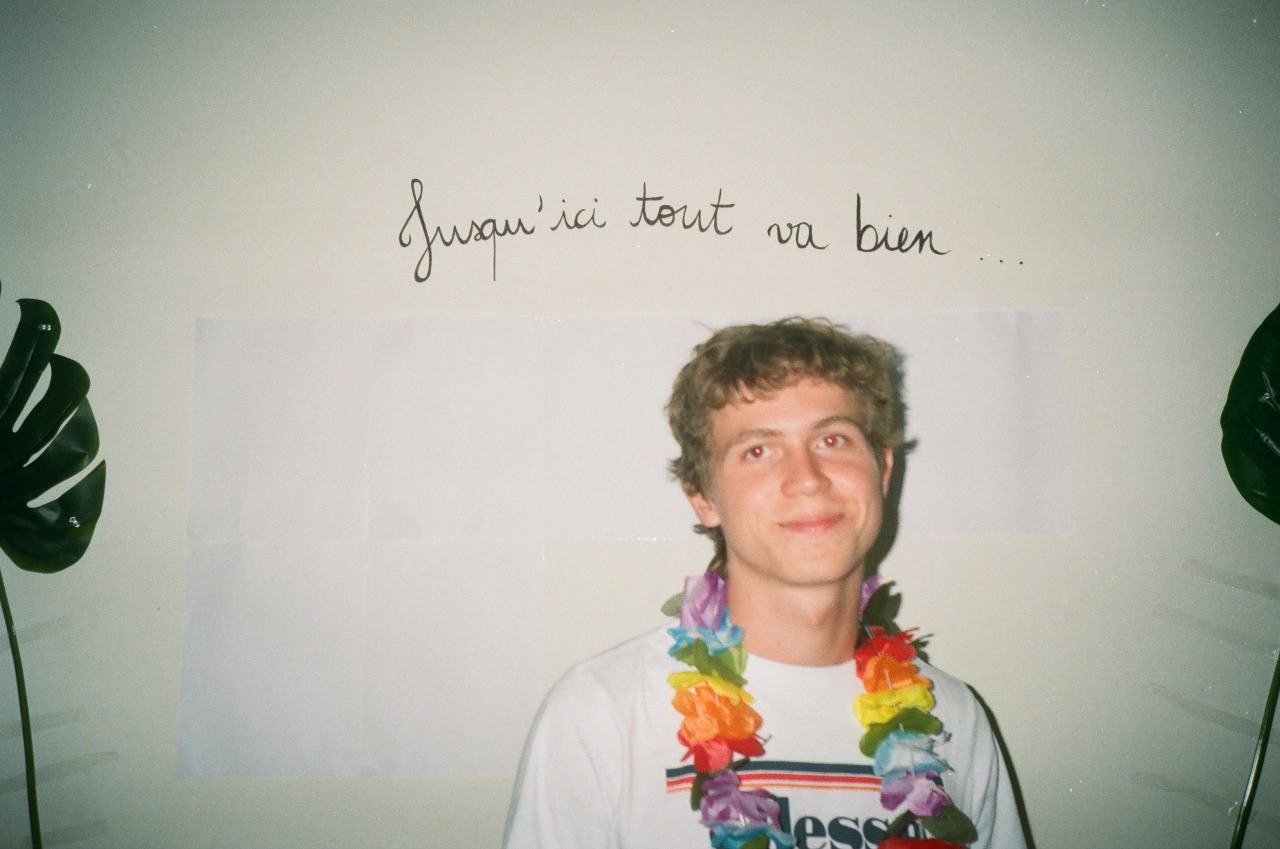 Jusqu'ici tout va bien ...
less